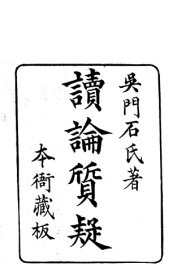 吳門石氏著
讀論質疑
本衙藏板